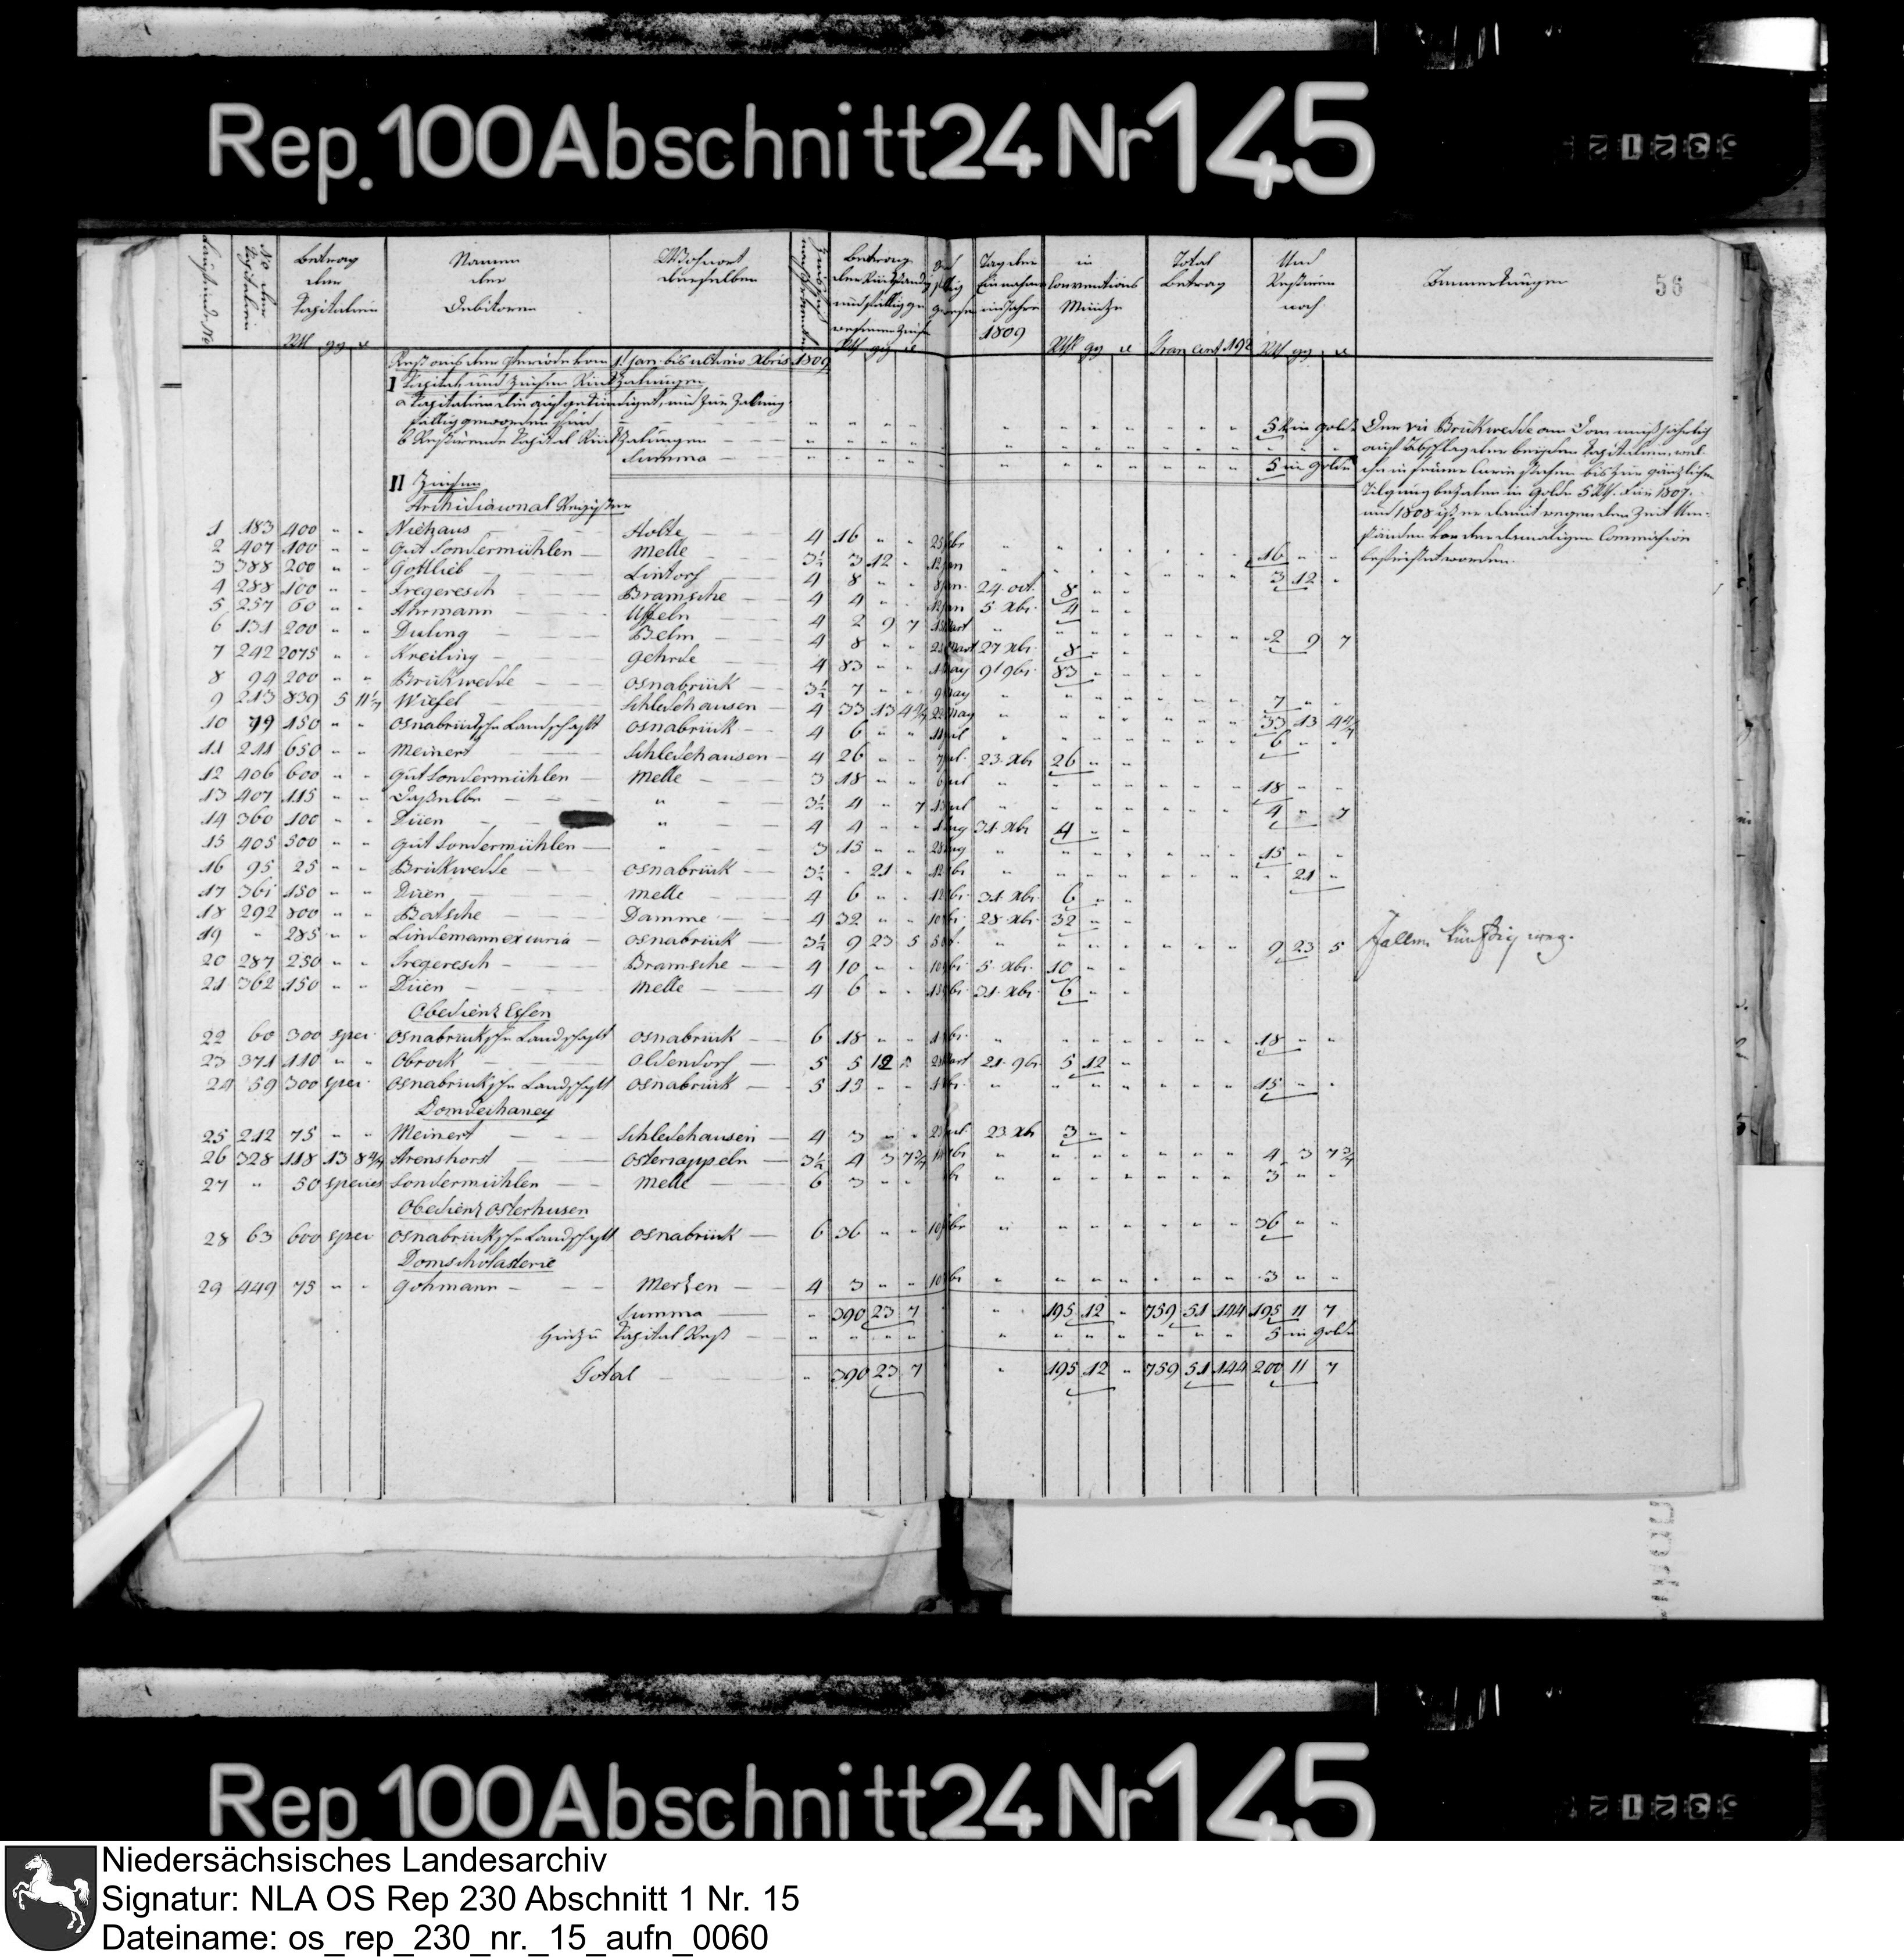 Rep. 100 Abschnitt 24 Nr 145
56
Laufende No | No der Capitalien | Betrag der Capitalien | Namen der Debitoren | Wohnort derselben | Betrag der Rückständig und fällig gewesenen Zinsen | Tag der Einnahme im Jahre 1809 | in Conventions Münze | Total Betrag | Und Restiren noch | Anmerkungen
Rest aus der Periode vom 1. Jan. bis ultimo Xbris 1809
I Capital und Zinsen Rückzalungen
a Capitalien die aufgekündiget, und zur Zalung
fällig geworden sind 5 in Gold
b Restirende Capital Rückzalungen
Summa 5 in Golde
II Zinsen
Archidiaconal Register
1 183 400 " " Niehaus Holte 4 16 " " 16 " "
2 407 100 " " Gut Sondermühlen Melle 3½ 3 12 " 3 12 "
3 388 200 " " Gottlieb Lintorf 4 8 " " 24. oct. 8 " "
4 288 100 " " Fregeresch Bramsche 4 4 " " 5. Xbr. 4 " "
5 257 60 " " Ahrmann Uffeln 4 2 9 7 2 9 7
6 131 200 " " Duling Belm 4 8 " " 27 Xbr. 8 " "
7 242 2075 " " Kreiling Gehrde 4 83 " " 9t 9br. 83 " "
8 94 200 " " Brükwedde Osnabrück 3½ 7 " " 7 " "
9 213 839 5 Wiefel Schledehausen 4 33 13 4 33 13 4
10 79 150 " " Osnabrücksche Landschafft Osnabrück 4 6 " " 6 " "
11 211 650 " " Meinert Schledehausen 4 26 " " 23. Xbr 26 " "
12 406 600 " " Gut Sondermühlen Melle 3 18 " " 18 " "
13 407 115 " " Dasselbe " 3½ 4 " 7 4 " 7
14 360 100 " " Düen " 4 4 " " 31. Xbr 4 " "
15 405 500 " " Gut Sondermühlen " 3 15 " " 15 " "
16 95 25 " " Brükwedde Osnabrück 3½ " 21 " " 21 "
17 361 150 " " Düen Melle 4 6 " " 31. Xbr. 6 " "
18 292 800 " " Batsche Damme 4 32 " " 28. Xbr. 32 " "
19 " 285 " " Lindemann ex curia Osnabrück 3½ 9 23 5 9 23 5
20 287 250 " " Fregeresch Bramsche 4 10 " " 5. Xbr. 10 " "
21 362 150 " " Düen Melle 4 6 " " 31. Xbr. 6 " "
Obedienz Essen
22 60 300 spec. Osnabrücksche Landschafft Osnabrück 6 18 " " 18 " "
23 371 110 " " Obrock Oldendorf 5 5 12 " 21. 9br. 5 12 "
24 59 300 spec. Osnabrücksche Landschafft Osnabrück 5 15 " " 15 " "
Domdechaney
25 212 75 " " Meinert Schledehausen 4 3 " " 23 Xb 3 " "
26 328 118 13 8 Arenshorst Ostercappeln 3½ 4 3 7 4 3 7
27 " 50 species Sondermühlen Melle 6 3 " " 3 " "
Obedienz Osterhusen
28 63 600 spec Osnabrücksche Landschafft Osnabrück 6 36 " " 36 " "
Domscholasterie
29 449 75 " " Gohmann Merzen 4 3 " " 3 " "
Summa " 390 23 7 " 195 12 " 759 51 144 195 11 7
Hinzu Capital Rest 5 in Golde
Total " 390 23 7 " 195 12 " 759 51 144 200 11 7
Der vic Brükwedde am Dom muß jährlich
auf Abschlag der beiden Capitalien, wel-
che in seiner Curie stehen bis zur gänzlichen
Tilgung bezalen in Golde 5 Rtl. Für 1807.
und 1808 ist er damit wegen den Zeit Um-
ständen von der damaligen Commission
befristet worden.
Fallen künftig weg.
Rep. 100 Abschnitt 24 Nr 145
Niedersächsisches Landesarchiv
Signatur: NLA OS Rep 230 Abschnitt 1 Nr. 15
Dateiname: os_rep_230_nr._15_aufn_0060